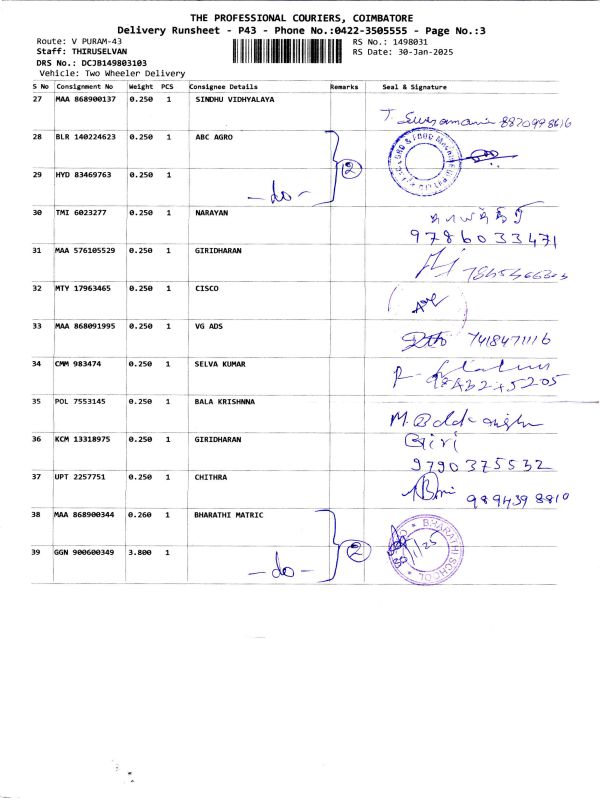 THE PROFESSIONAL COURIERS, COIMBATORE
Delivery Runsheet - P43 - Phone No.:0422-3505555 - Page No.:3
Route: V PURAM-43 RS No.: 1498031
Staff: THIRUSELVAN RS Date: 30-Jan-2025
DRS No.: DCJB149803103
Vehicle: Two Wheeler Delivery
S No Consignment No Weight PCS Consignee Details Remarks Seal & Signature
27 MAA 868900137 0.250 1 SINDHU VIDHYALAYA
28 BLR 140224623 0.250 1 ABC AGRO
29 HYD 83469763 0.250 1 -do- 2
30 TMI 6023277 0.250 1 NARAYAN
9786033471
31 MAA 576105529 0.250 1 GIRIDHARAN
32 MTY 17963465 0.250 1 CISCO
33 MAA 868091995 0.250 1 VG ADS 7418471116
34 CMM 983474 0.250 1 SELVA KUMAR
35 POL 7553145 0.250 1 BALA KRISHNNA
36 KCM 13318975 0.250 1 GIRIDHARAN Giri
9790375532
37 UPT 2257751 0.250 1 CHITHRA 9894398810
38 MAA 868900344 0.260 1 BHARATHI MATRIC BHARATHI SCHOOL
39 GGN 900600349 3.800 1 -do- 2 30/1/25